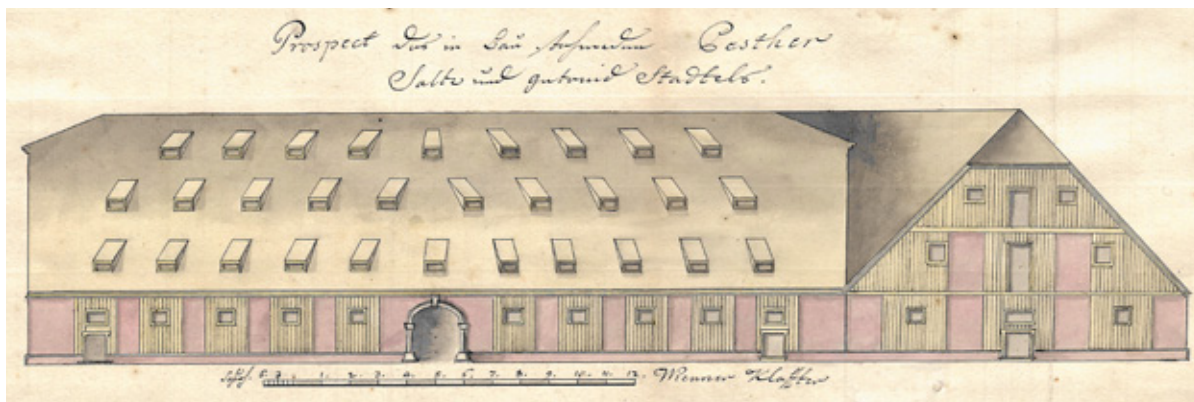 Prospect des in Bau stehenden Pesther
Saltz und getraid Stadtels.
Schuh. 6. 3. 1. 2. 3. 4. 5. 6. 7. 8. 9. 10. 11. 12. Wienner Klaffter